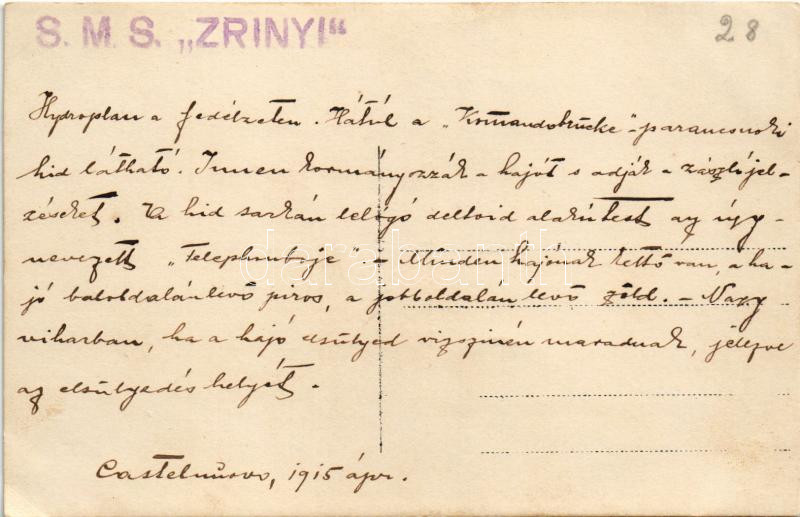 S. M. S. „ZRINYI“
28
Hydroplan a fedélzeten. Hátúl a „Komandobrücke"-parancsnoki
hid látható. Innen kormányozzák a hajót s adják a zászlójel-
zéseket. A hid sarkán lelógó deltoid alakú test az úgy-
nevezett „Telephonboje". - Minden hajónak kettő van, a ha-
jó baloldalán levő piros, a jobboldalán levő zöld. - Nagy
viharban, ha a hajó elsülyed vizszinén maradnak, jelezve
az elsülyedés helyét.
Castelnuovo, 1915 ápr.
darabanth